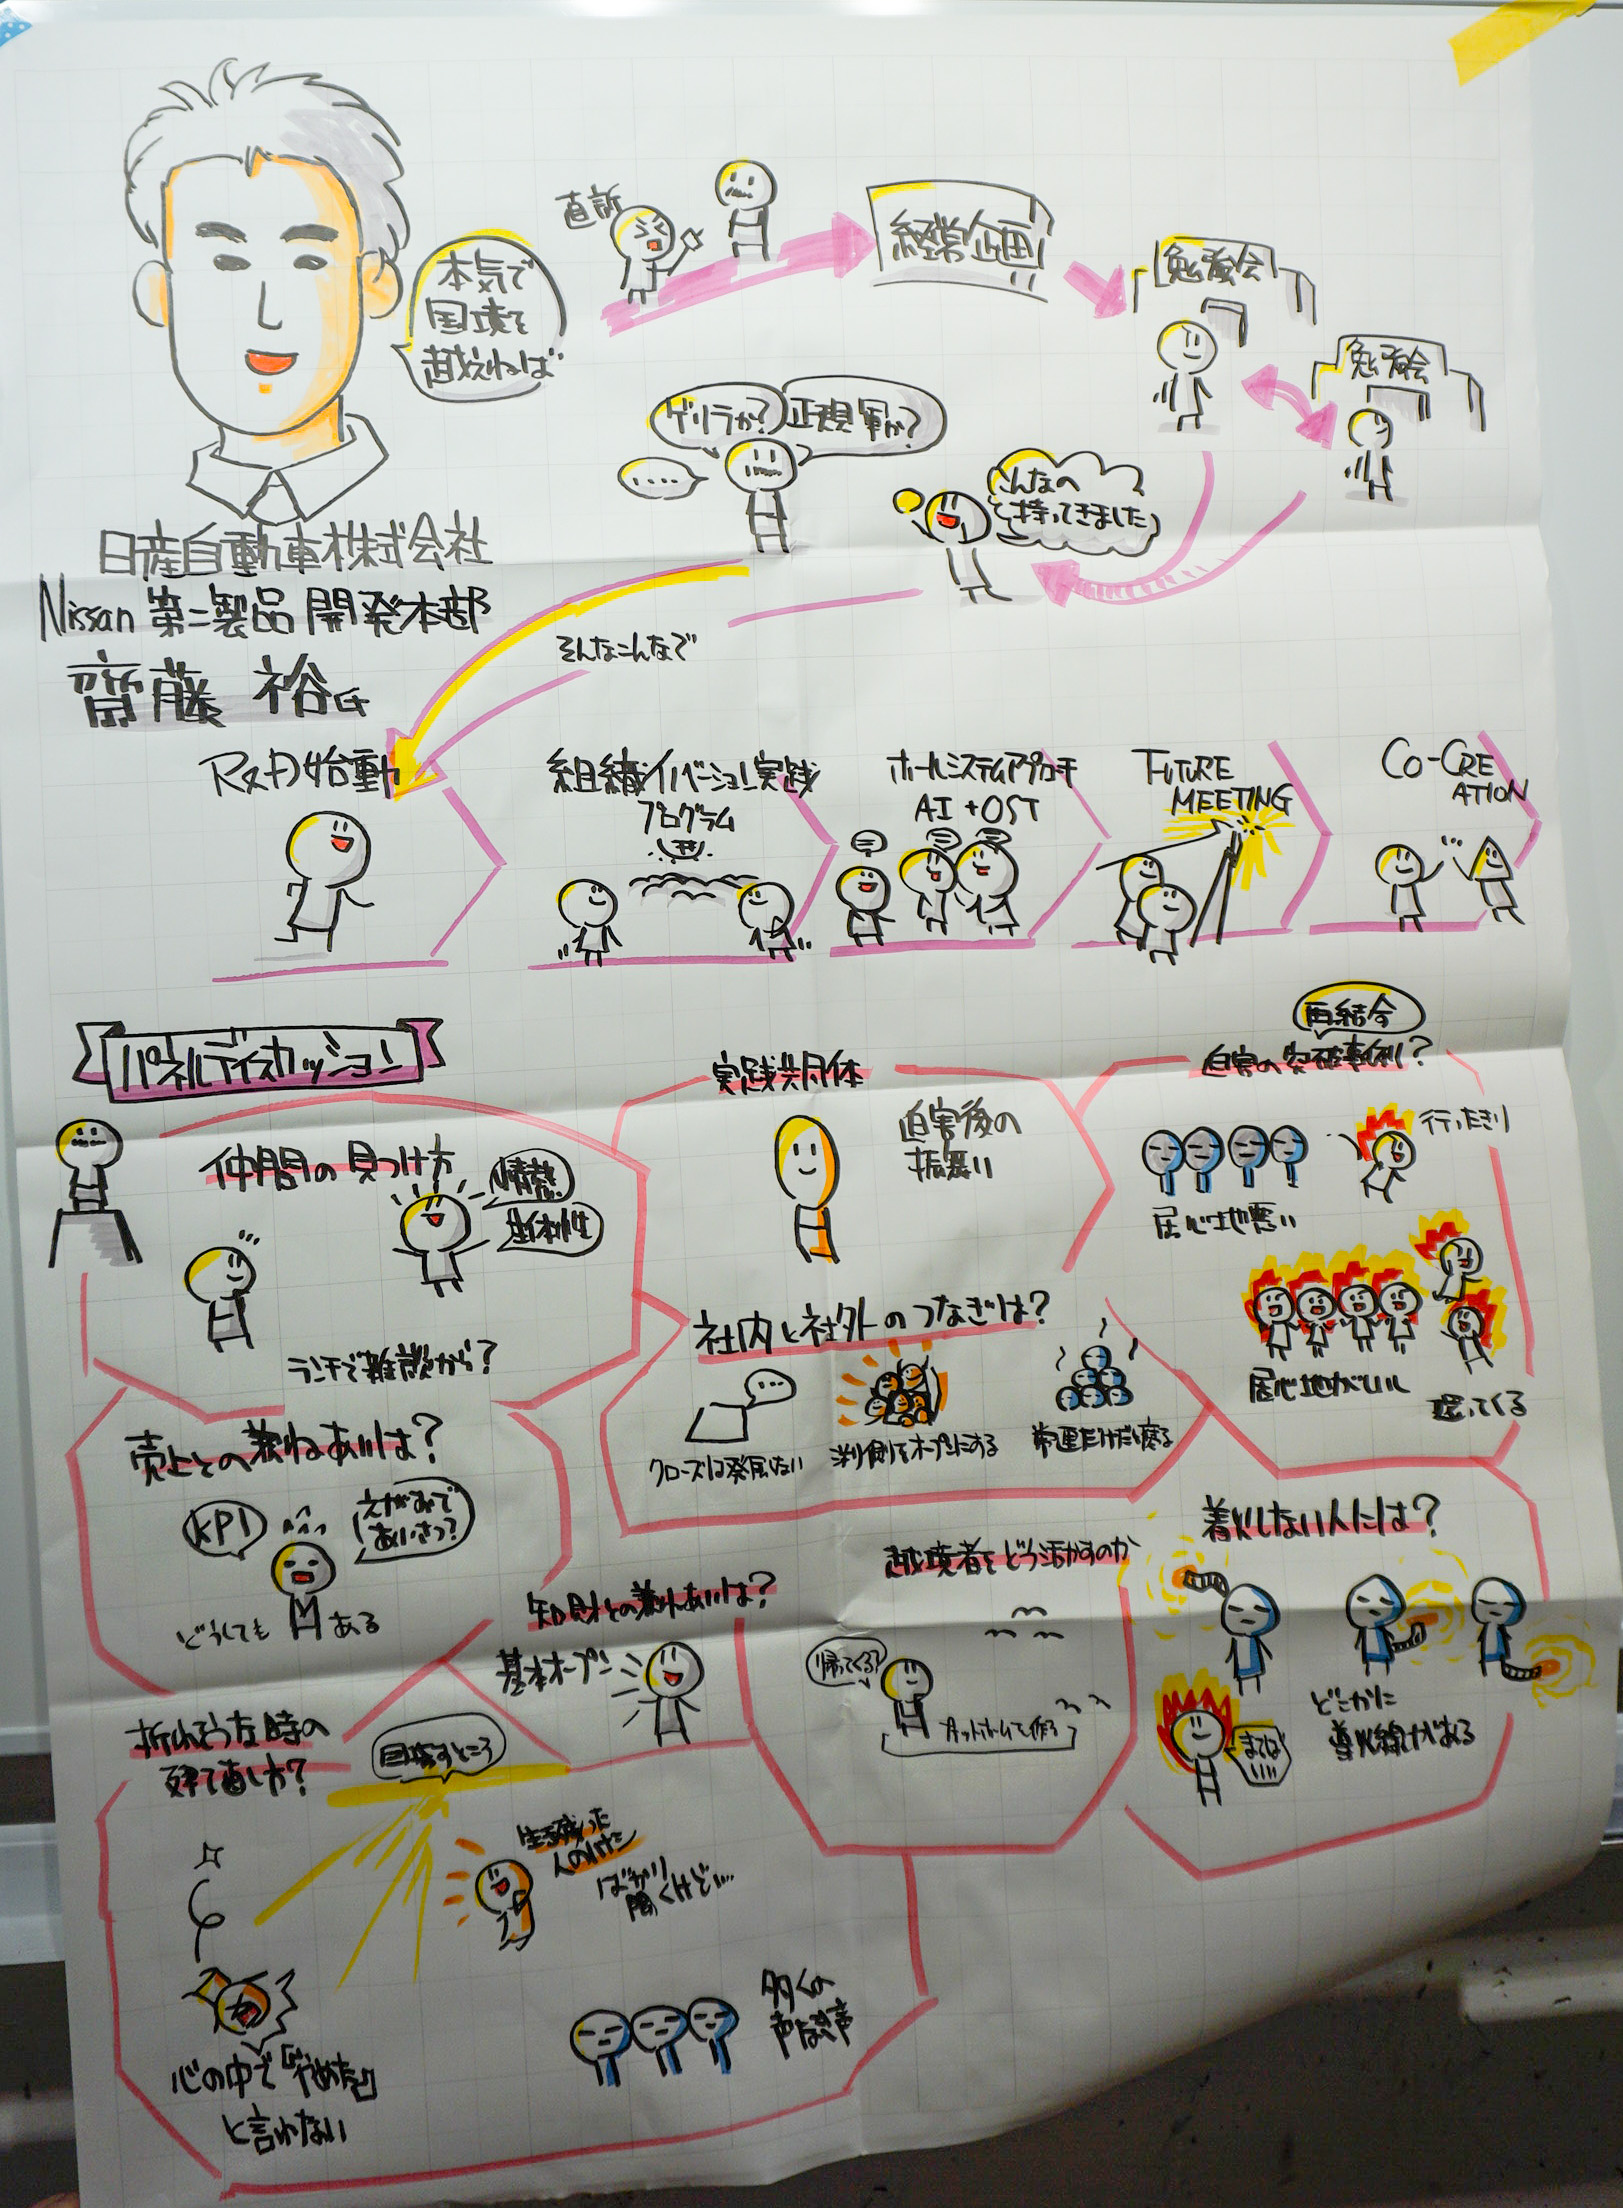 本気で
国境を
越えれば
直訴
経営企画
勉強会
勉強会
ゲリラか?
正規軍か?
....
こんなの
持ってきました
日産自動車株式会社
Nissan 第二製品開発本部
齋藤 裕氏
そんなこんなで
R&D始動
組織イノベーション実践
プログラム
ホールシステムアプローチ
AI+OST
FUTURE
MEETING
CO-CRE
ATION
パネルディスカッション
仲間の見つけ方
情熱
主体性
ランチで雑談から?
実践共同体
迫害後の
振舞い
再結合
迫害の突破事例?
居心地悪い
行ったきり
居心地がいい
還ってくる
社内と社外のつなぎは?
...
クローズは発展しない
常連だけだと腐る
売上との兼ねあいは?
KPI
えがおで
あいさつ?
どうしても
ある
知財との兼ねあいは?
基本オープン
越境者をどう活かすのか
帰ってくる?
着火しない人には?
まてば
いい
どこかに
導火線がある
折れそうな時の
立て直し方?
目指すところ
生き残った
人のはなし
ばかり
聞くけど...
心の中で「やめた」
と言わない
多くの
声なき声